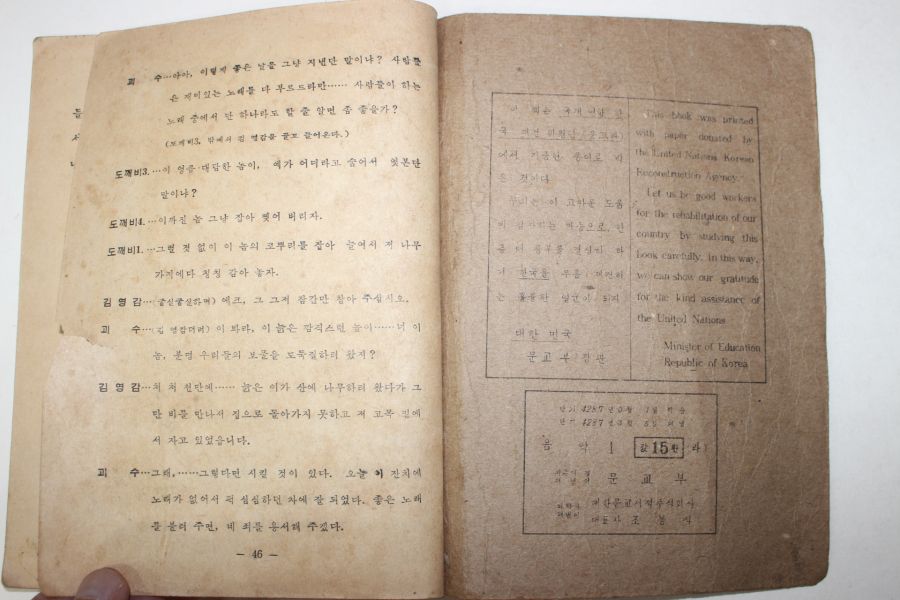 괴 수…아아, 이렇게 좋은 날을 그냥 지낸단 말이냐? 사람들
은 재미있는 노래를 다 부르드라만…… 사람들이 하는
노래 중에서 단 하나라도 할 줄 알면 좀 좋을가?
(도깨비3, 밖에서 김 영감을 끌고 들어온다.)
도깨비3.…이 엉큼 대담한 놈이, 예가 어디라고 숨어서 엿본단
말이냐?
도깨비4.…이까진 놈 그냥 잡아 찢어 버리자.
도깨비1.…그럴 것 없이 이 놈의 코뿌리를 잡아 늘여서 저 나무
가지에다 칭칭 감아 놓자.
김영감…(굽실굽실하며) 에크, 그 그저 잠깐만 참아 주십시오.
괴 수…(김 영감더러) 이 봐라, 이 늙은 깜직스런 놈아……너 이
놈, 분명 우리들의 보물을 도둑질하러 왔지?
김영감…처 처 천만에…… 늙은 이가 산에 나무하러 왔다가 그
만 비를 만나서 집으로 돌아가지 못하고 저 고목 밑에
서 자고 있었읍니다.
괴 수…그래,……그렇다면 시킬 것이 있다. 오늘 이 잔치에
노래가 없어서 퍽 심심하던 차에 잘 되었다. 좋은 노래
를 불러 주면, 네 죄를 용서해 주겠다.
— 46 —
이 책은 국제 연합 한
국 재건 위원단(운크라)
에서 기증한 종이로 박
은 것이다.
우리는 이 고마운 도움
에 감사하는 마음으로, 한
층 더 공부를 열심히 하
여 한국을 부흥 재건하
는 훌륭한 일군이 되자
대한 민국
문교부 장관
This book was printed
with paper donated by
the United Nations Korean
Reconstruction Agency.
Let us be good workers
for the rehabilitation of our
country by studying this
book carefully. In this way,
we can show our gratitude
for the kind assistance of
the United Nations
Minister of Education
Republic of Korea
단기 4287년
단기 4287년
음 악 1 값 15환
문 교 부
대한문교서적주식회사
대표자 조